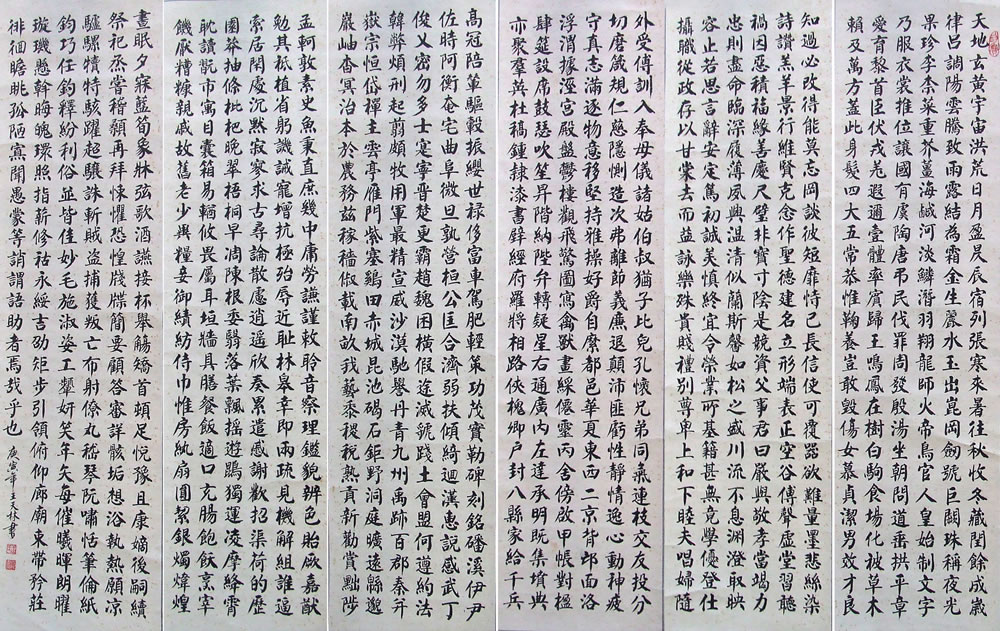 天地玄黃宇宙洪荒日月盈昃辰宿列張寒來暑往秋收冬藏閏餘成歲
律呂調陽雲騰致雨露結為霜金生麗水玉出崑岡劒號巨闕珠稱夜光
果珍李柰菜重芥薑海鹹河淡鱗潛羽翔龍師火帝鳥官人皇始制文字
乃服衣裳推位讓國有虞陶唐弔民伐罪周發殷湯坐朝問道垂拱平章
愛育黎首臣伏戎羌遐邇壹體率賓歸王鳴鳳在樹白駒食場化被草木
賴及萬方蓋此身髮四大五常恭惟鞠養豈敢毀傷女慕貞潔男效才良
知過必改得能莫忘罔談彼短靡恃己長信使可覆器欲難量墨悲絲染
詩讚羔羊景行維賢克念作聖德建名立形端表正空谷傳聲虛堂習聽
禍因惡積福緣善慶尺璧非寶寸陰是競資父事君曰嚴與敬孝當竭力
忠則盡命臨深履薄夙興溫清似蘭斯馨如松之盛川流不息淵澄取映
容止若思言辭安定篤初誠美慎終宜令榮業所基籍甚無竟學優登仕
攝職從政存以甘棠去而益詠樂殊貴賤禮別尊卑上和下睦夫唱婦隨
外受傅訓入奉母儀諸姑伯叔猶子比兒孔懷兄弟同氣連枝交友投分
切磨箴規仁慈隱惻造次弗離節義廉退顛沛匪虧性靜情逸心動神疲
守真志滿逐物意移堅持雅操好爵自縻都邑華夏東西二京背邙面洛
浮渭據涇宮殿盤鬱樓觀飛驚圖寫禽獸畫綵僊靈丙舍傍啟甲帳對楹
肆筵設席鼓瑟吹笙昇階納陛弁轉疑星右通廣內左達承明既集墳典
亦聚羣英杜稿鍾隸漆書壁經府羅將相路俠槐卿戶封八縣家給千兵
高冠陪輦驅轂振纓世祿侈富車駕肥輕策功茂實勒碑刻銘磻溪伊尹
佐時阿衡奄宅曲阜微旦孰營桓公匡合濟弱扶傾綺迴漢惠說感武丁
俊乂密勿多士寔寧晉楚更霸趙魏困橫假途滅虢踐土會盟何遵約法
韓弊煩刑起翦頗牧用軍最精宣威沙漠馳譽丹青九州禹跡百郡秦并
嶽宗恒岱禪主雲亭雁門紫塞鷄田赤城昆池碣石鉅野洞庭曠遠緜邈
巖岫杳冥治本於農務茲稼穡俶載南畝我藝黍稷稅熟貢新勸賞黜陟
孟軻敦素史魚秉直庶幾中庸勞謙謹敕聆音察理鑑貌辨色貽厥嘉猷
勉其祗植省躬譏誡寵增抗極殆辱近恥林皋幸即兩疏見機解組誰逼
索居閑處沉默寂寥求古尋論散慮逍遙欣奏累遣慼謝歡招渠荷的歷
園莽抽條枇杷晚翠梧桐早凋陳根委翳落葉飄搖遊鵾獨運凌摩絳霄
耽讀翫市寓目囊箱易輶攸畏屬耳垣牆具膳餐飯適口充腸飽飫烹宰
饑厭糟糠親戚故舊老少異糧妾御績紡侍巾帷房紈扇圓絜銀燭煒煌
晝眠夕寐藍筍象牀弦歌酒讌接杯舉觴矯首頓足悅豫且康嫡後嗣續
祭祀烝嘗稽顙再拜悚懼恐惶牋牒簡要顧答審詳骸垢想浴執熱願涼
驢騾犢特駭躍超驤誅斬賊盜捕獲叛亡布射僚丸嵇琴阮嘯恬筆倫紙
鈞巧任釣釋紛利俗並皆佳妙毛施淑姿工顰妍笑年矢每催曦暉朗曜
璇璣懸斡晦魄環照指薪修祜永綏吉劭矩步引領俯仰廊廟束帶矜莊
徘徊瞻眺孤陋寡聞愚蒙等誚謂語助者焉哉乎也
庚寅年王天林書